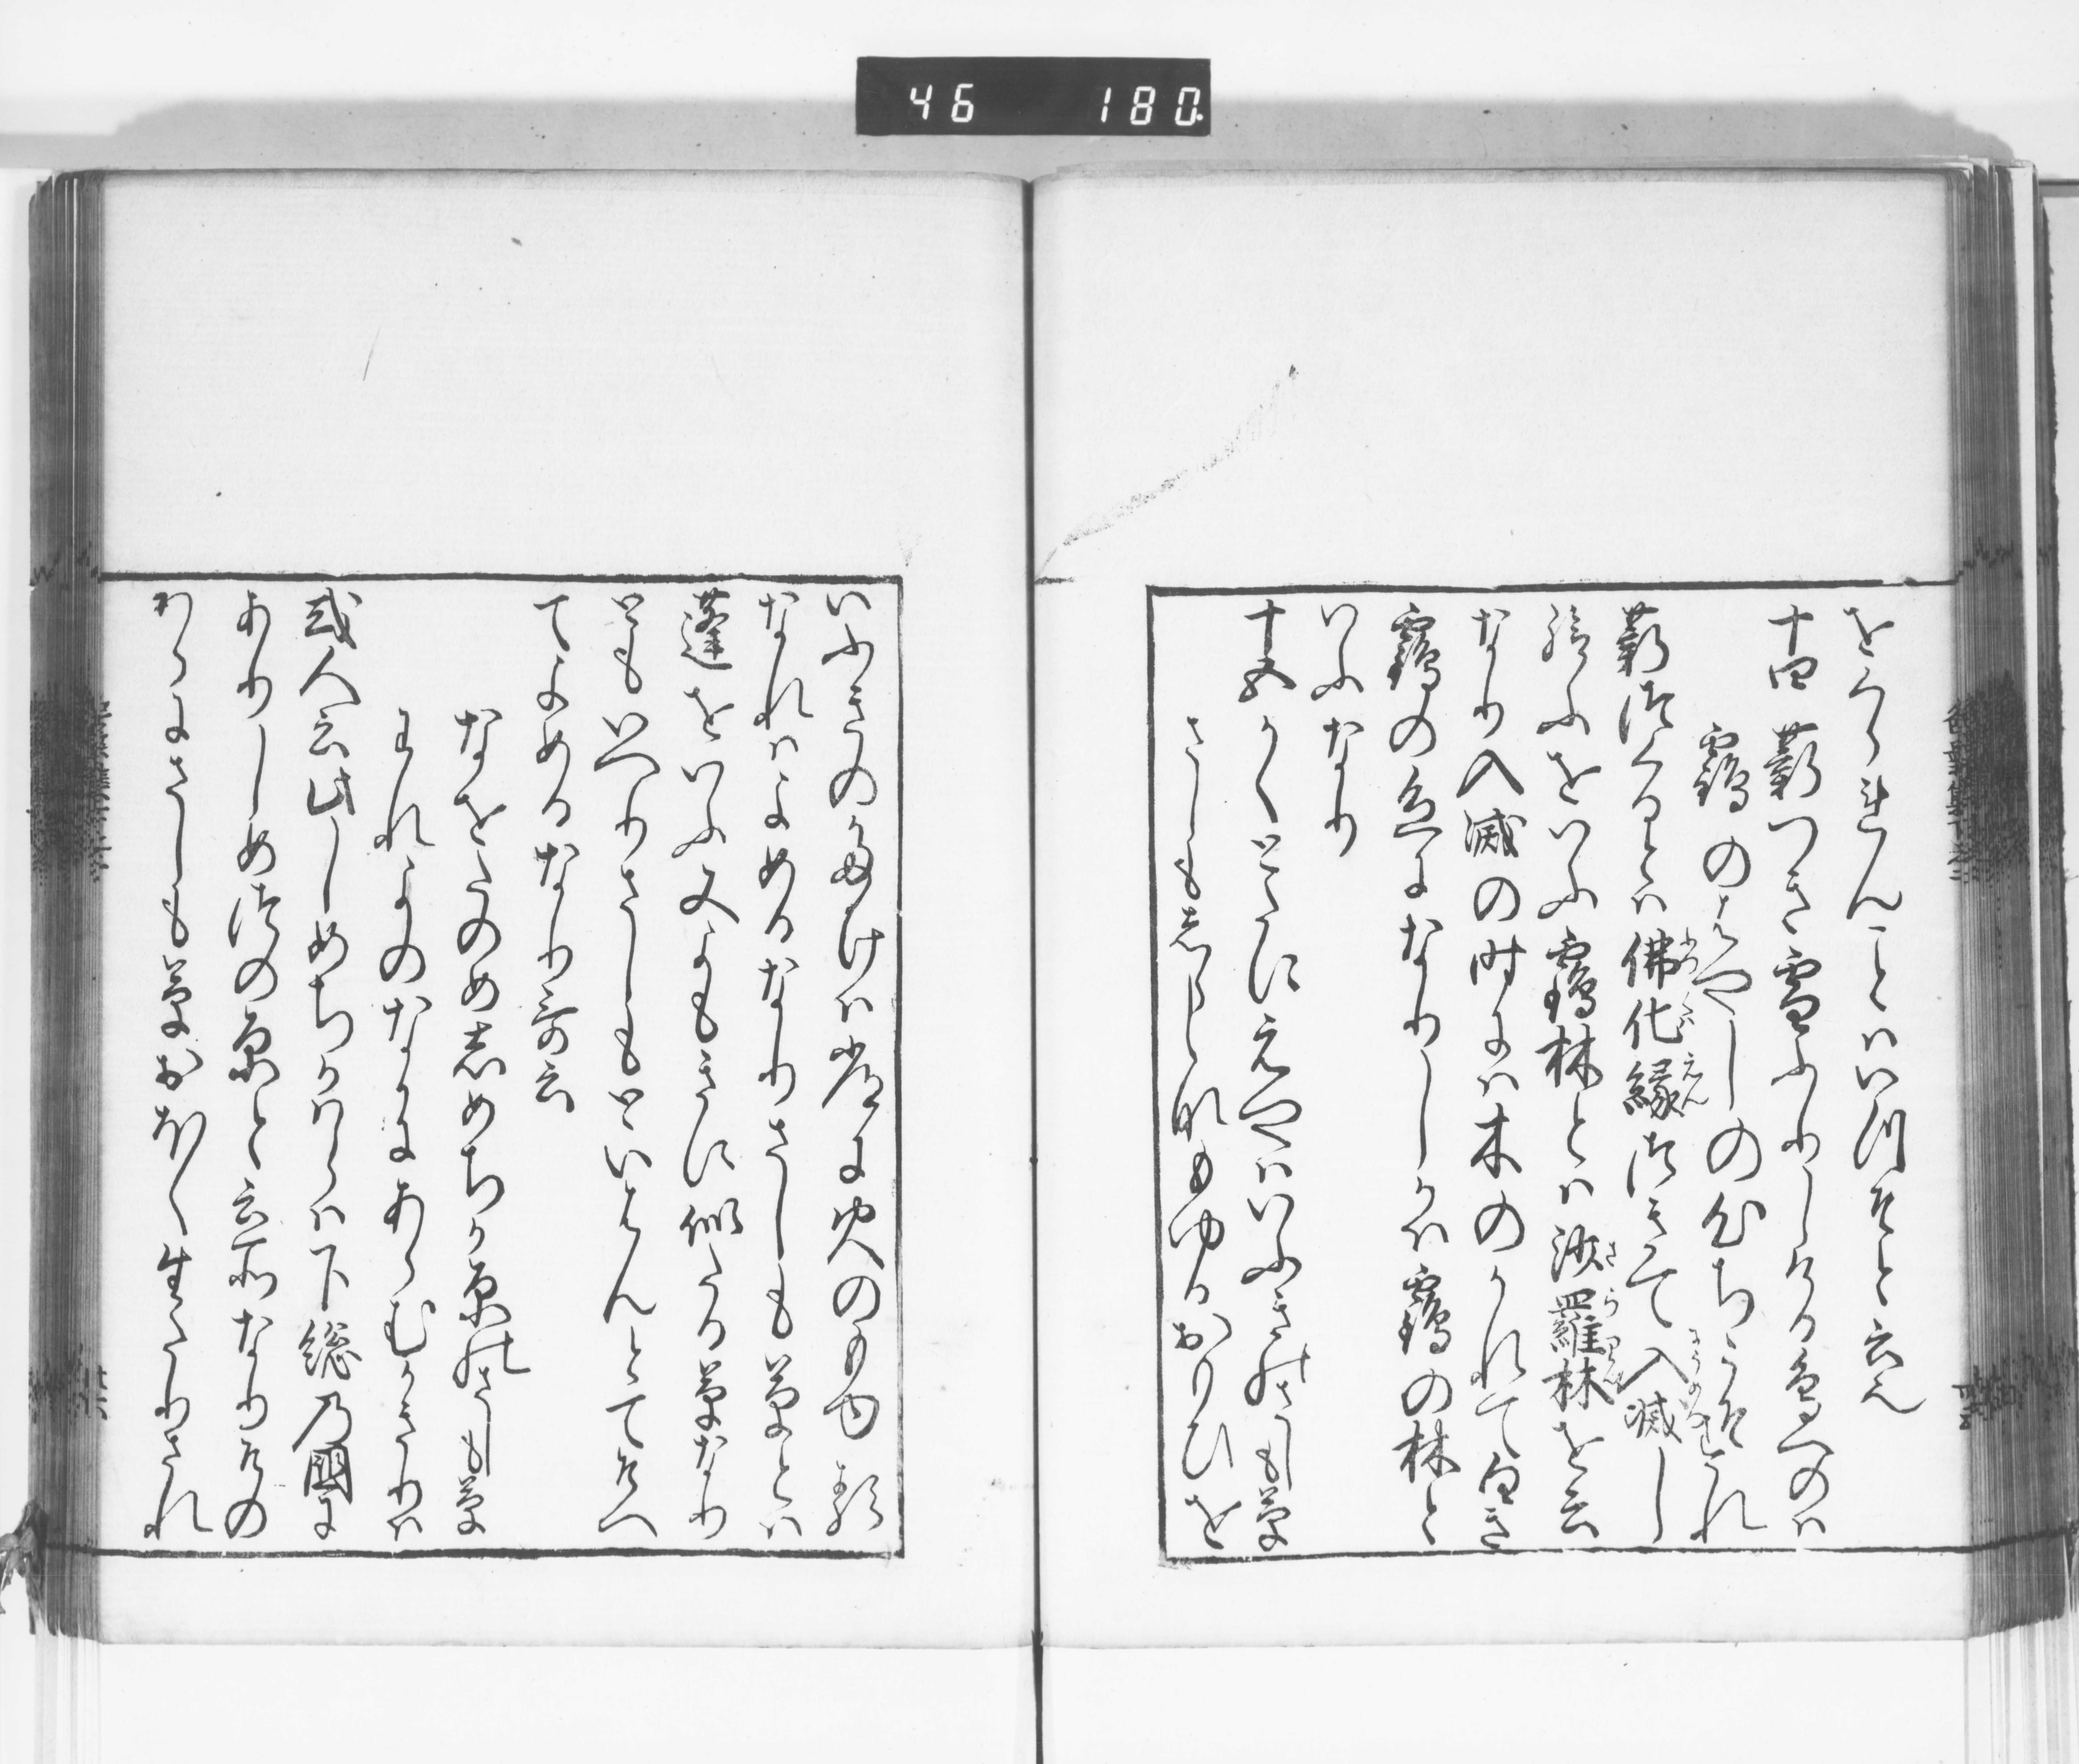 46 180
をくらせんことはいつそと云々
十四 薪つき雪ふりしける鳥へのは
鶴のはやしの心ちこそすれ
薪つくるとは佛化縁つきて入滅し
給ふをいふ鶴林とは沙羅林を云
なり入滅の時には木のかれて白き
鶴の色になりしかは鶴の林と
いふなり
十五 かくとたにえやはいふきのさしも草
さしもしらしなもゆるおもひを
いふきのたけは常に火のもゆる
なれはよめるなりさしも草とは
蓬をいふ又よもきに似たる草なり
ともいへりさしもといはんとてそへ
てよめるなり哥云
なをたのめしめちか原のさしも草
われよのなかにあらむかきりは
或人云此しめちかはらは下総乃國に
ありしめつの原と云所なりその
わらにさしも草おほく生たりされ